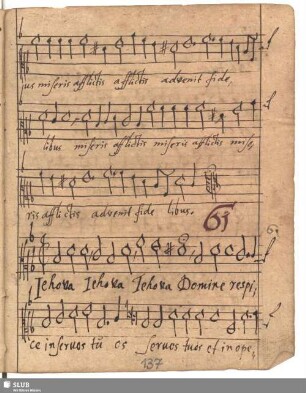 jus miseris afflictis afflictis advenit fide,
libus miseris afflictis miseris afflictis mise,
ris afflictis advenit fide libus.
63
Jehova Jehova Jehova Domine respi,
ce in servos tũ os servos tuos et in ope,
137
SLUB